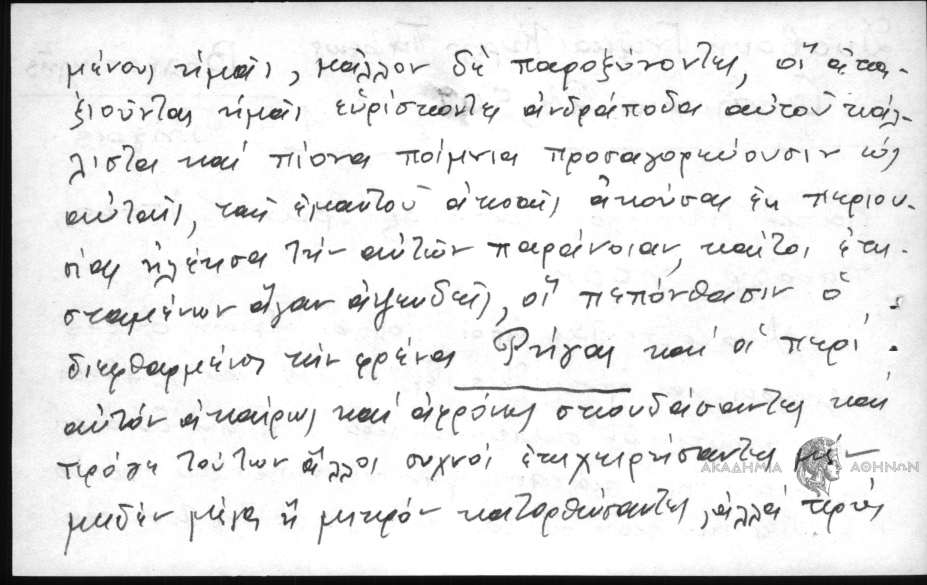 μένους ἡμᾶς, μᾶλλον δὲ παροξύνοντες, οἳ ἀπα-
ξιοῦντας ἡμᾶς εὑρίσκοντες ἀνδράποδα αὐτοῦ κάλ-
λιστα καὶ πίονα ποίμνια προσαγορεύουσιν ὡς
αὐτοὺς, ταῖς ἐμαυτοῦ ἀκοαῖς ἀκούσας ἐκ περιου-
σίας ἠλέησα τὴν αὐτῶν παράνοιαν, καίτοι ἐπι-
σταμένων ἄγαν ἀψευδῶς, οἷα πεπόνθασιν ὁ
διεφθαρμένος τὴν φρένα Ρήγας καὶ οἱ περὶ
αὐτὸν ἀκαίρως καὶ ἀφρόνως σπουδάσαντες καὶ
πρό γε τούτων ἄλλοι συχνοὶ ἐπιχειρήσαντες μὲν
μηδὲν μέγα ἢ μικρὸν κατορθώσαντες, ἀλλὰ πρὸς
ΑΚΑΔΗΜΙΑ ΑΘΗΝΩΝ